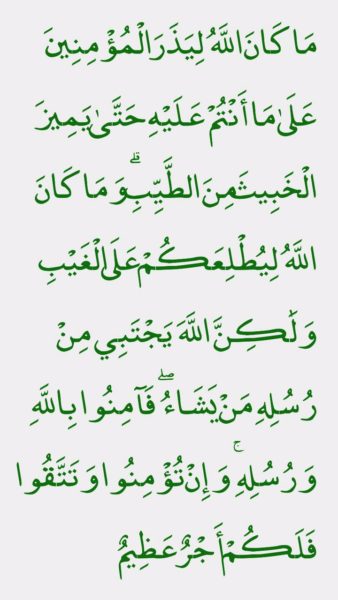 مَا كَانَ اللَّهُ لِيَذَرَ الْمُؤْمِنِينَ
عَلَىٰ مَا أَنْتُمْ عَلَيْهِ حَتَّىٰ يَمِيزَ
الْخَبِيثَ مِنَ الطَّيِّبِ ۗ وَمَا كَانَ
اللَّهُ لِيُطْلِعَكُمْ عَلَى الْغَيْبِ
وَلَٰكِنَّ اللَّهَ يَجْتَبِي مِنْ
رُسُلِهِ مَنْ يَشَاءُ ۖ فَآمِنُوا بِاللَّهِ
وَرُسُلِهِ ۚ وَإِنْ تُؤْمِنُوا وَتَتَّقُوا
فَلَكُمْ أَجْرٌ عَظِيمٌ